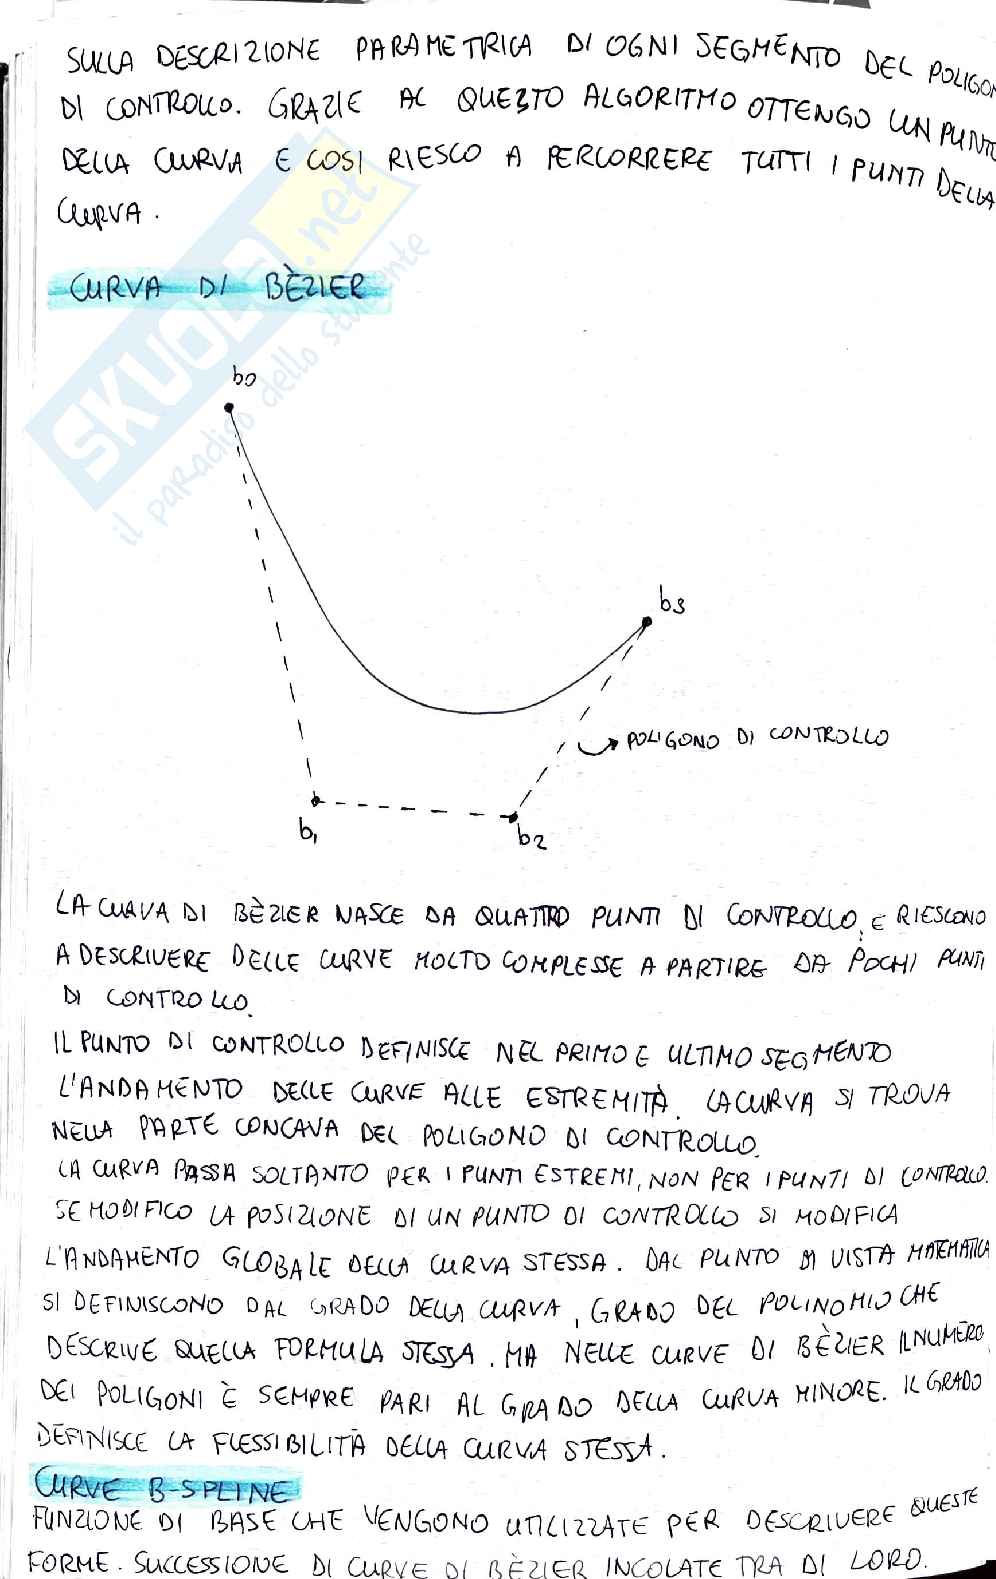 SULLA DESCRIZIONE PARAMETRICA DI OGNI SEGMENTO DEL POLIGON
DI CONTROLLO. GRAZIE AL QUESTO ALGORITMO OTTENGO UN PUNTO
DELLA CURVA E COSI RIESCO A PERCORRERE TUTTI I PUNTI DELLA
CURVA.
CURVA DI BÈZIER
b0
b3
POLIGONO DI CONTROLLO
b1
b2
LA CURVA DI BÈZIER NASCE DA QUATTRO PUNTI DI CONTROLLO, E RIESCONO
A DESCRIVERE DELLE CURVE MOLTO COMPLESSE A PARTIRE DA POCHI PUNTI
DI CONTROLLO.
IL PUNTO DI CONTROLLO DEFINISCE NEL PRIMO E ULTIMO SEGMENTO
L'ANDAMENTO DELLE CURVE ALLE ESTREMITÀ. LA CURVA SI TROVA
NELLA PARTE CONCAVA DEL POLIGONO DI CONTROLLO.
LA CURVA PASSA SOLTANTO PER I PUNTI ESTREMI, NON PER I PUNTI DI CONTROLLO.
SE MODIFICO LA POSIZIONE DI UN PUNTO DI CONTROLLO SI MODIFICA
L'ANDAMENTO GLOBALE DELLA CURVA STESSA. DAL PUNTO DI VISTA MATEMATICA
SI DEFINISCONO DAL GRADO DELLA CURVA, GRADO DEL POLINOMIO CHE
DESCRIVE QUELLA FORMULA STESSA. MA NELLE CURVE DI BÈZIER IL NUMERO
DEI POLIGONI È SEMPRE PARI AL GRADO DELLA CURVA MINORE. IL GRADO
DEFINISCE LA FLESSIBILITÀ DELLA CURVA STESSA.
CURVE B-SPLINE
FUNZIONE DI BASE CHE VENGONO UTILIZZATE PER DESCRIVERE QUESTE
FORME. SUCCESSIONE DI CURVE DI BÈZIER INCOLATE TRA DI LORO.
SKUOLA.net
il paradiso dello studente